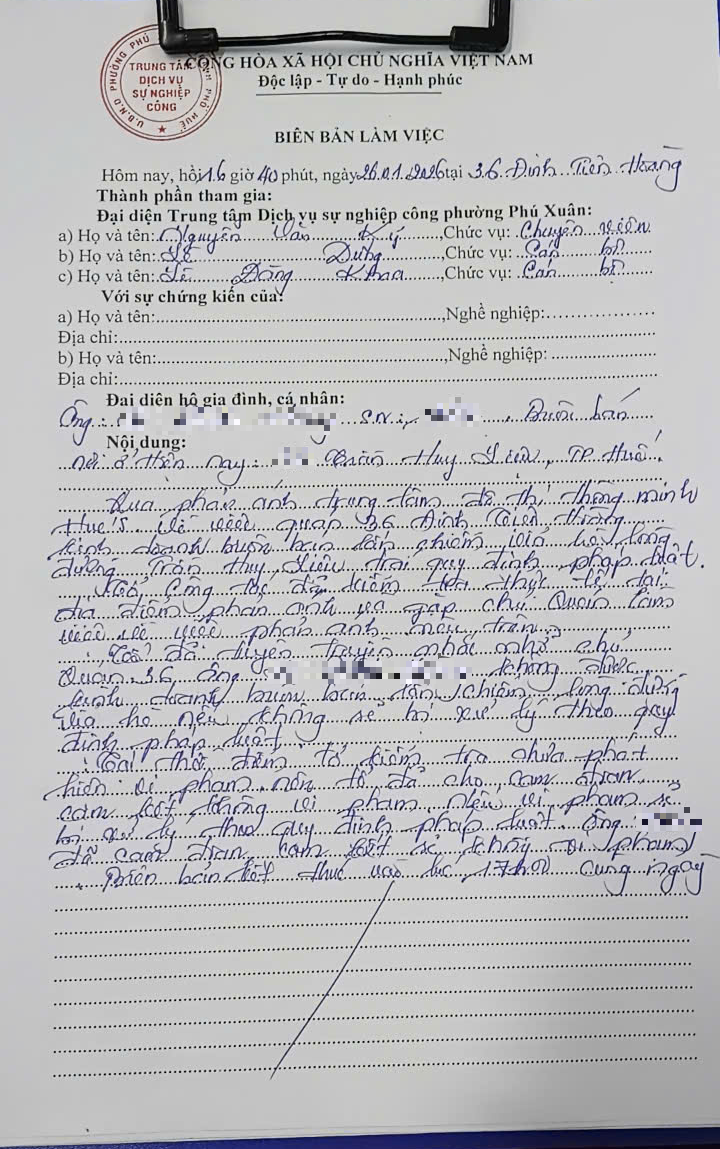 U.B.N.D PHƯỜNG PHÚ
PHỐ HUẾ
TRUNG TÂM
DỊCH VỤ
SỰ NGHIỆP
CÔNG
CỘNG HÒA XÃ HỘI CHỦ NGHĨA VIỆT NAM
Độc lập - Tự do - Hạnh phúc
BIÊN BẢN LÀM VIỆC
Hôm nay, hồi 16 giờ 40 phút, ngày 26.01.2026 tại 36 Đinh Tiên Hoàng
Thành phần tham gia:
Đại diện Trung tâm Dịch vụ sự nghiệp công phường Phú Xuân:
a) Họ và tên: Nguyễn Văn Ký, Chức vụ: Chuyên viên
b) Họ và tên: Lê Dũng, Chức vụ: Cán bộ
c) Họ và tên: Lê Đăng Khoa, Chức vụ: Cán bộ
Với sự chứng kiến của:
a) Họ và tên:, Nghề nghiệp:
Địa chỉ:
b) Họ và tên:, Nghề nghiệp:
Địa chỉ:
Đại diện hộ gia đình, cá nhân:
Ông: S.N: , Buôn bán
Nội dung:
nơi ở hiện nay: Trần Huy Liệu, TP Huế.
Qua phản ánh trung tâm đô thị thông minh
Hue-S về việc quán 36 Đinh Tiên Hoàng
kinh doanh buôn bán lấn chiếm vỉa hè lòng
đường Trần Huy Liệu trái quy định pháp luật.
Tổ công tác đã kiểm tra thực tế tại
địa điểm phản ánh và gặp chủ quán làm
việc về việc phản ánh nêu trên.
Tổ đã tuyên truyền nhắc nhở chủ
Quán 36 ông không được
kinh doanh buôn bán lấn chiếm lòng đường
vỉa hè nếu không sẽ bị xử lý theo quy
định pháp luật.
Tại thời điểm tổ kiểm tra chưa phát
hiện vi phạm nên tổ đã cho cam đoan
cam kết không vi phạm, nếu vi phạm sẽ
bị xử lý theo quy định pháp luật. Ông
đã cam đoan cam kết sẽ không vi phạm
Biên bản kết thúc vào lúc 17h00 cùng ngày